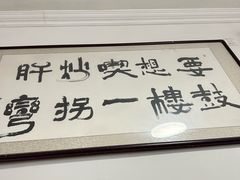 要想喫炒肝
鼓樓一拐彎